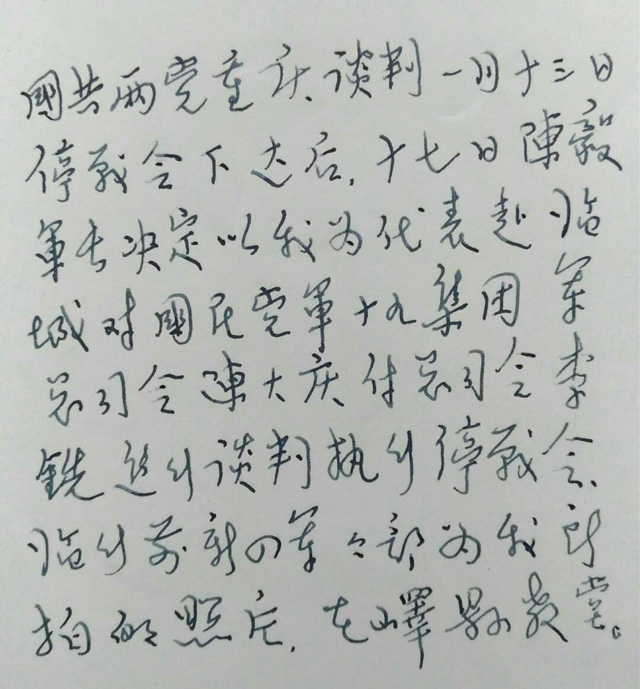 國共两党重庆谈判一月十三日
停战令下达后,十七日陳毅
軍长决定以我为代表赴临
城对國民党軍十九集团军
总司令陳大庆付总司令李
銑进行谈判执行停战令.
临行前新四军令部为我所
拍的照片,在嶧县教堂。